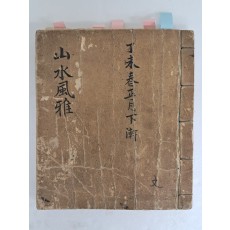 丁未春正月下澣
山水風雅
文